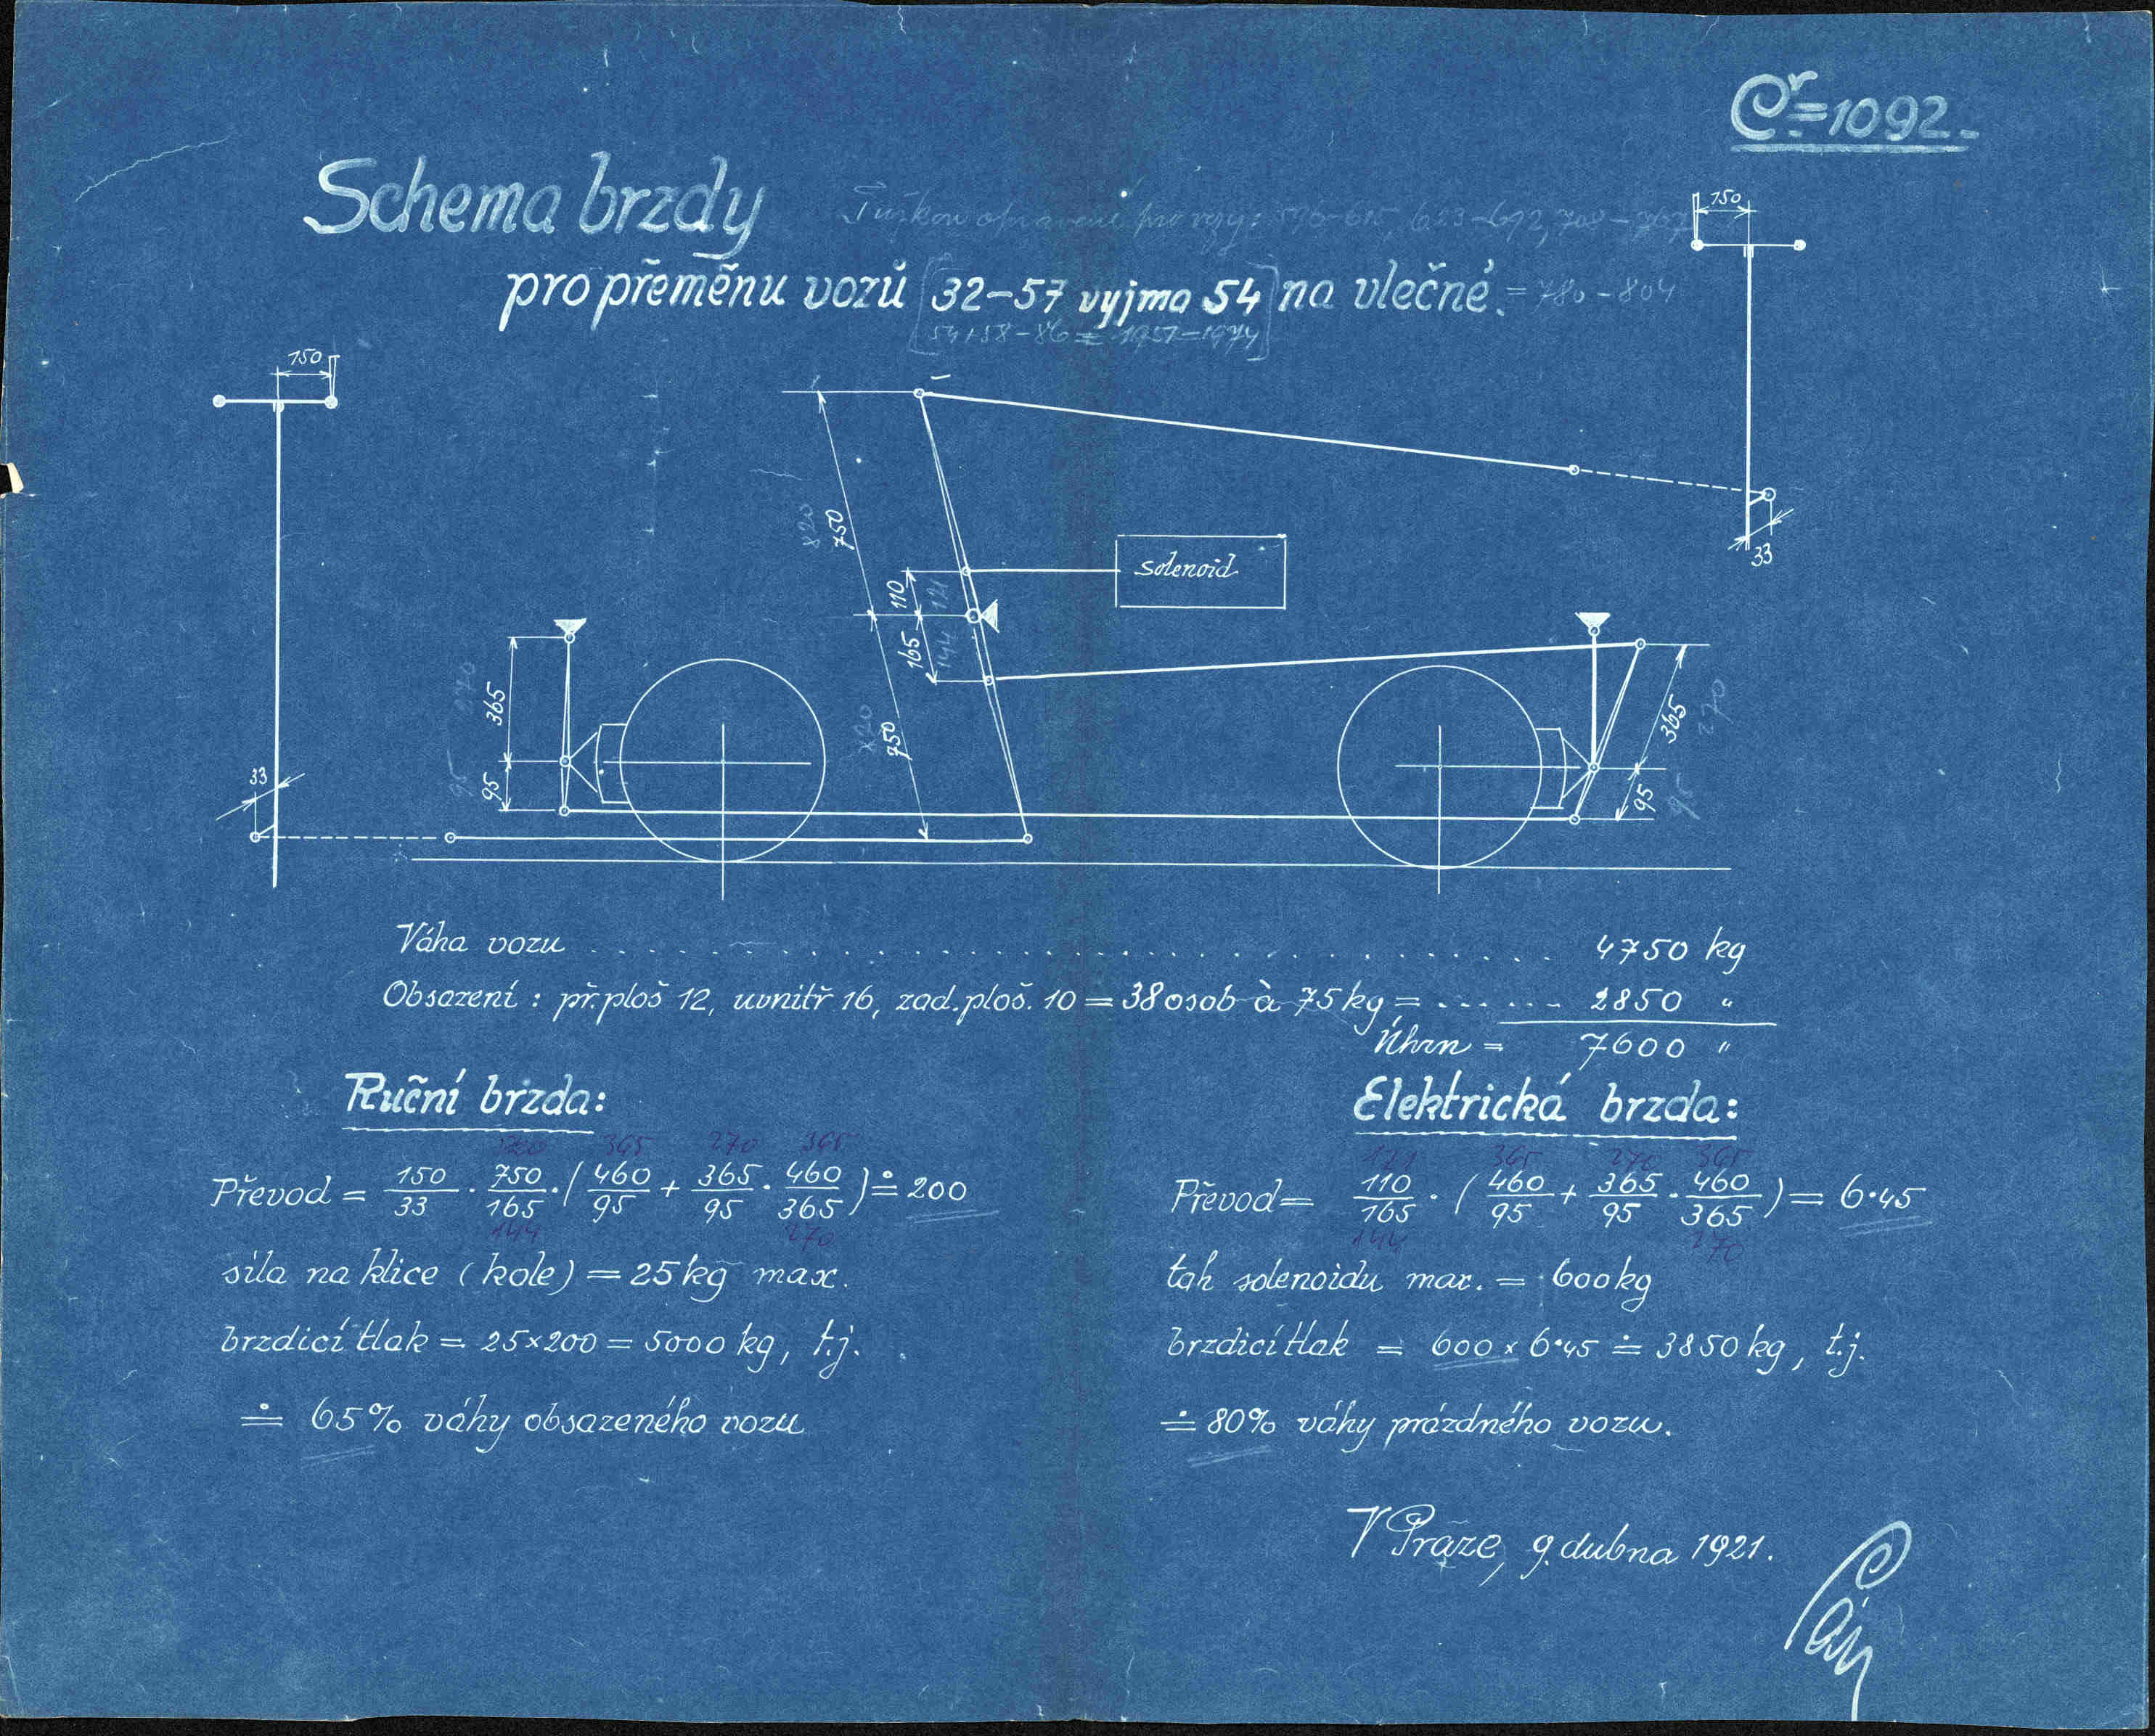 Čr=1092.
Schema brzdy
Tužkou opravené pro vozy: 596-615, 623-692, 708-767
pro přeměnu vozů [32-57 vyjma 54] na vlečné. = 780-804
54+58-86
150
150
33
820
750
110
121
165
144
820
750
solenoid
270
365
95
95
365
270
95
95
33
Váha vozu . . . . . . 4750 kg
Obsazení : př. ploš 12, uvnitř 16, zad. ploš. 10 = 38 osob à 75 kg = - - - - - - 2850 "
Úhrn = 7600 "
Ruční brzda:
820 365 270 365
Převod = 150/33 · 750/165 · (460/95 + 365/95 · 460/365) ≐ 200
144 270
síla na klice (kole) = 25 kg max.
brzdicí tlak = 25×200 = 5000 kg, t.j.
≐ 65% váhy obsazeného vozu
Elektrická brzda:
121 365 270 365
Převod = 110/165 · (460/95 + 365/95 · 460/365) = 6·45
144 270
tah solenoidu max. = 600 kg
brzdicí tlak = 600 × 6·45 ≐ 3850 kg, t.j.
≐ 80% váhy prázdného vozu.
V Praze, 9. dubna 1921.